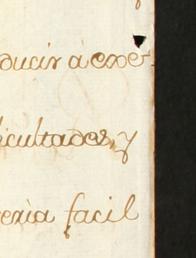 ducir à exe-
icultades, y
eria facil